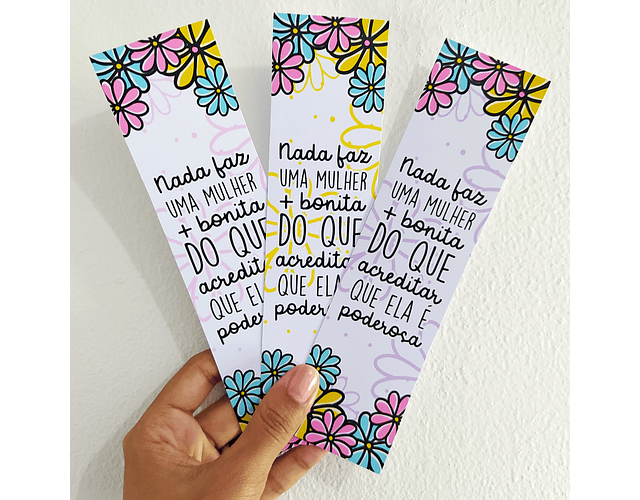 Nada faz
UMA MULHER
+ bonita
DO QUE
acredita
QUE EL
poder
Nada faz
UMA MULHER
+ bonita
DO QUE
acredita
QUE ELA
podero
Nada faz
UMA MULHER
+ bonita
DO QUE
acreditar
QUE ELA É
poderosa